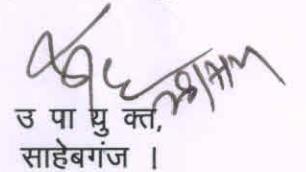 उ पा यु क्त,
साहेबगंज ।